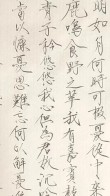 當以慷憂思難忘何以解憂
青子衿悠悠我心但為君故沉
鹿鳴食野之苹我有嘉賓鼓
明如月何時可掇憂從中